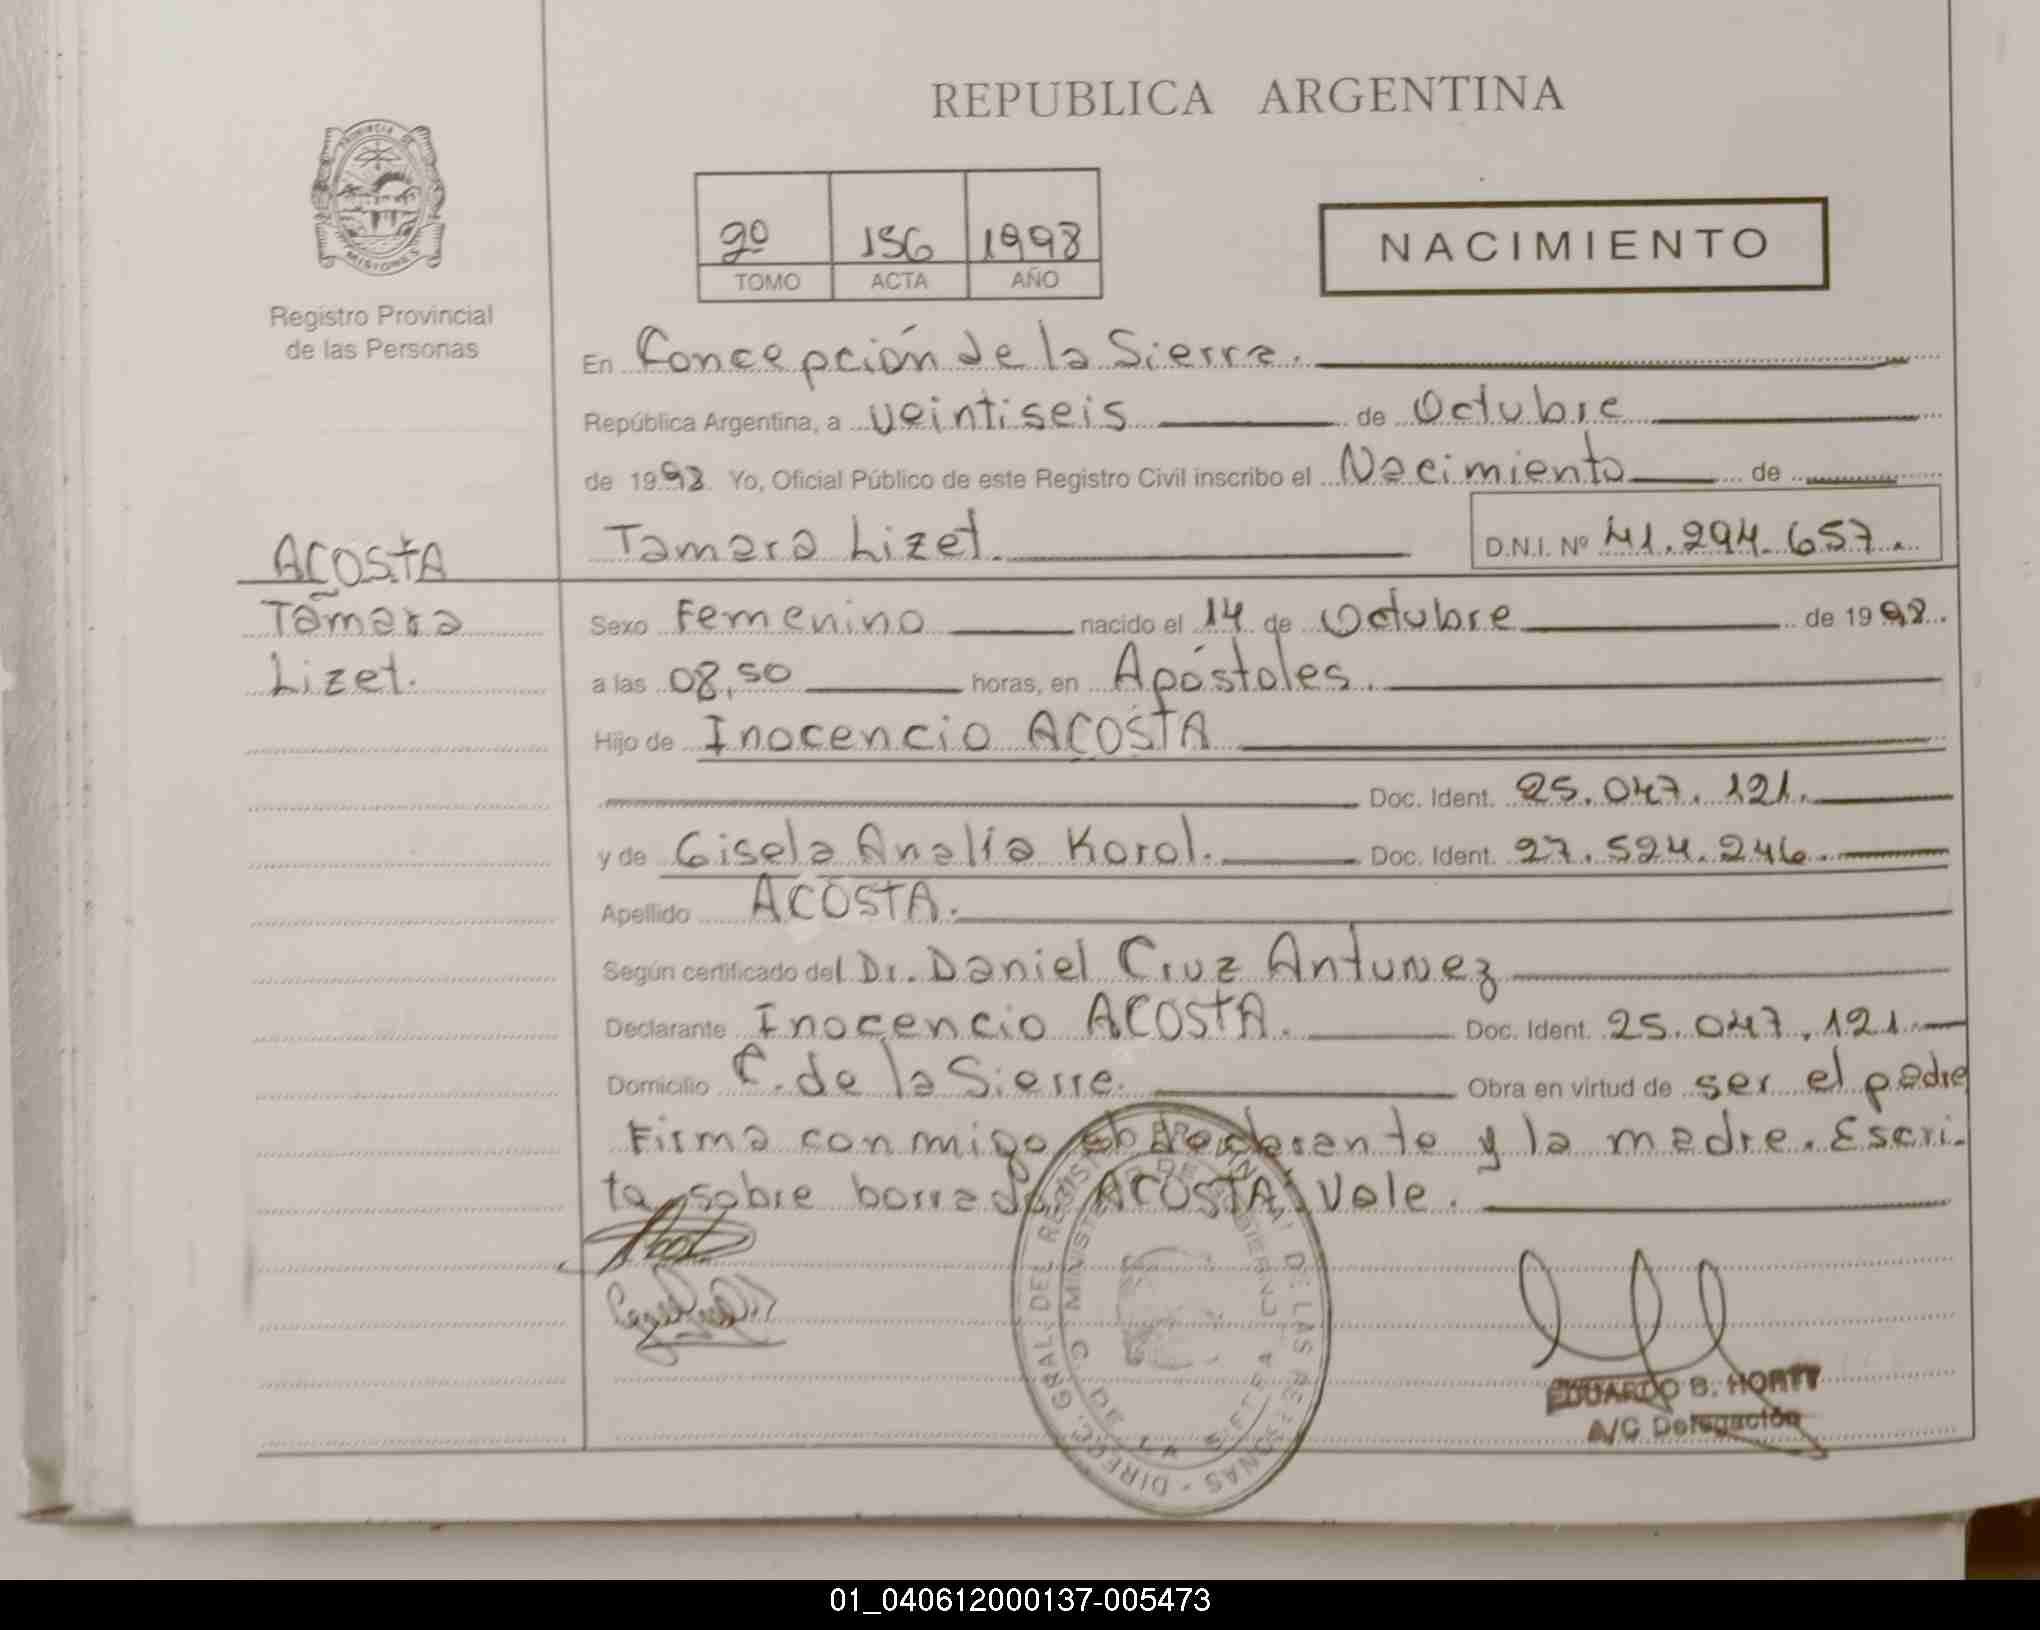 REPUBLICA ARGENTINA
PROVINCIA DE
MISIONES
Registro Provincial
de las Personas
2º 156 1998
TOMO ACTA AÑO
NACIMIENTO
En Concepción de la Sierra.
República Argentina, a veintiseis de Octubre
de 1998 Yo, Oficial Público de este Registro Civil inscribo el Nacimiento de
Tamara Lizet. D.N.I. Nº 41.294.657.
ACOSTA
Tamara
Lizet.
Sexo Femenino nacido el 14 de Octubre de 1998.
a las 08,50 horas, en Apóstoles.
Hijo de Inocencio ACOSTA
Doc. Ident. 25.047.121.
y de Gisela Analía Korol. Doc. Ident. 27.524.246.
Apellido ACOSTA.
Según certificado del Dr. Daniel Cruz Antunez
Declarante Inocencio ACOSTA. Doc. Ident. 25.047.121.
Domicilio C. de la Sierra. Obra en virtud de ser el padre
Firma conmigo el declarante y la madre. Escri-
ta sobre borrado "ACOSTA" Vale.
DIREC. GRAL. DEL REGIST PROVINCIAL DE LAS PERSONAS
MINISTERIO DE GOBIERNO
C. DE LA SIERRA
EDUARDO B. HORTT
A/C Delegación
01_040612000137-005473